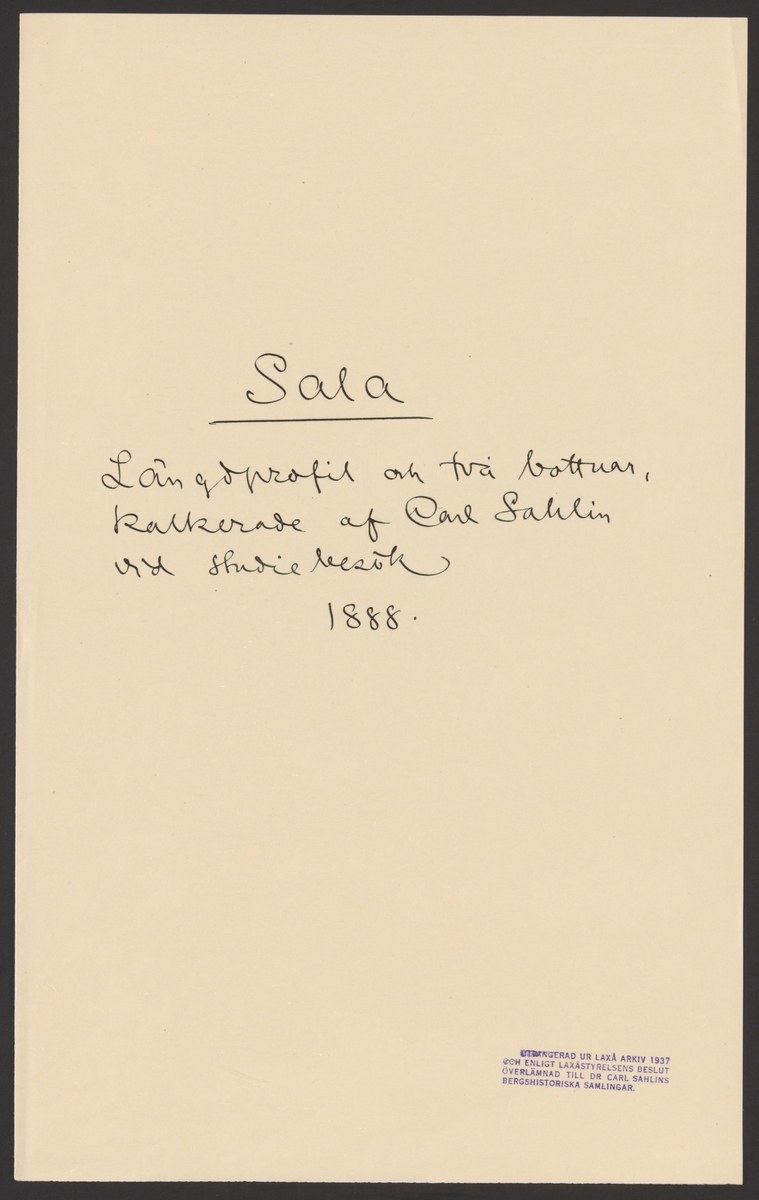 Sala
Längdprofil och två bottnar,
kalkerade af Carl Sahlin
vid studiebesök
1888.
UTRANGERAD UR LAXÅ ARKIV 1937
OCH ENLIGT LAXÅSTYRELSENS BESLUT
ÖVERLÄMNAD TILL DR CARL SAHLINS
BERGSHISTORISKA SAMLINGAR.